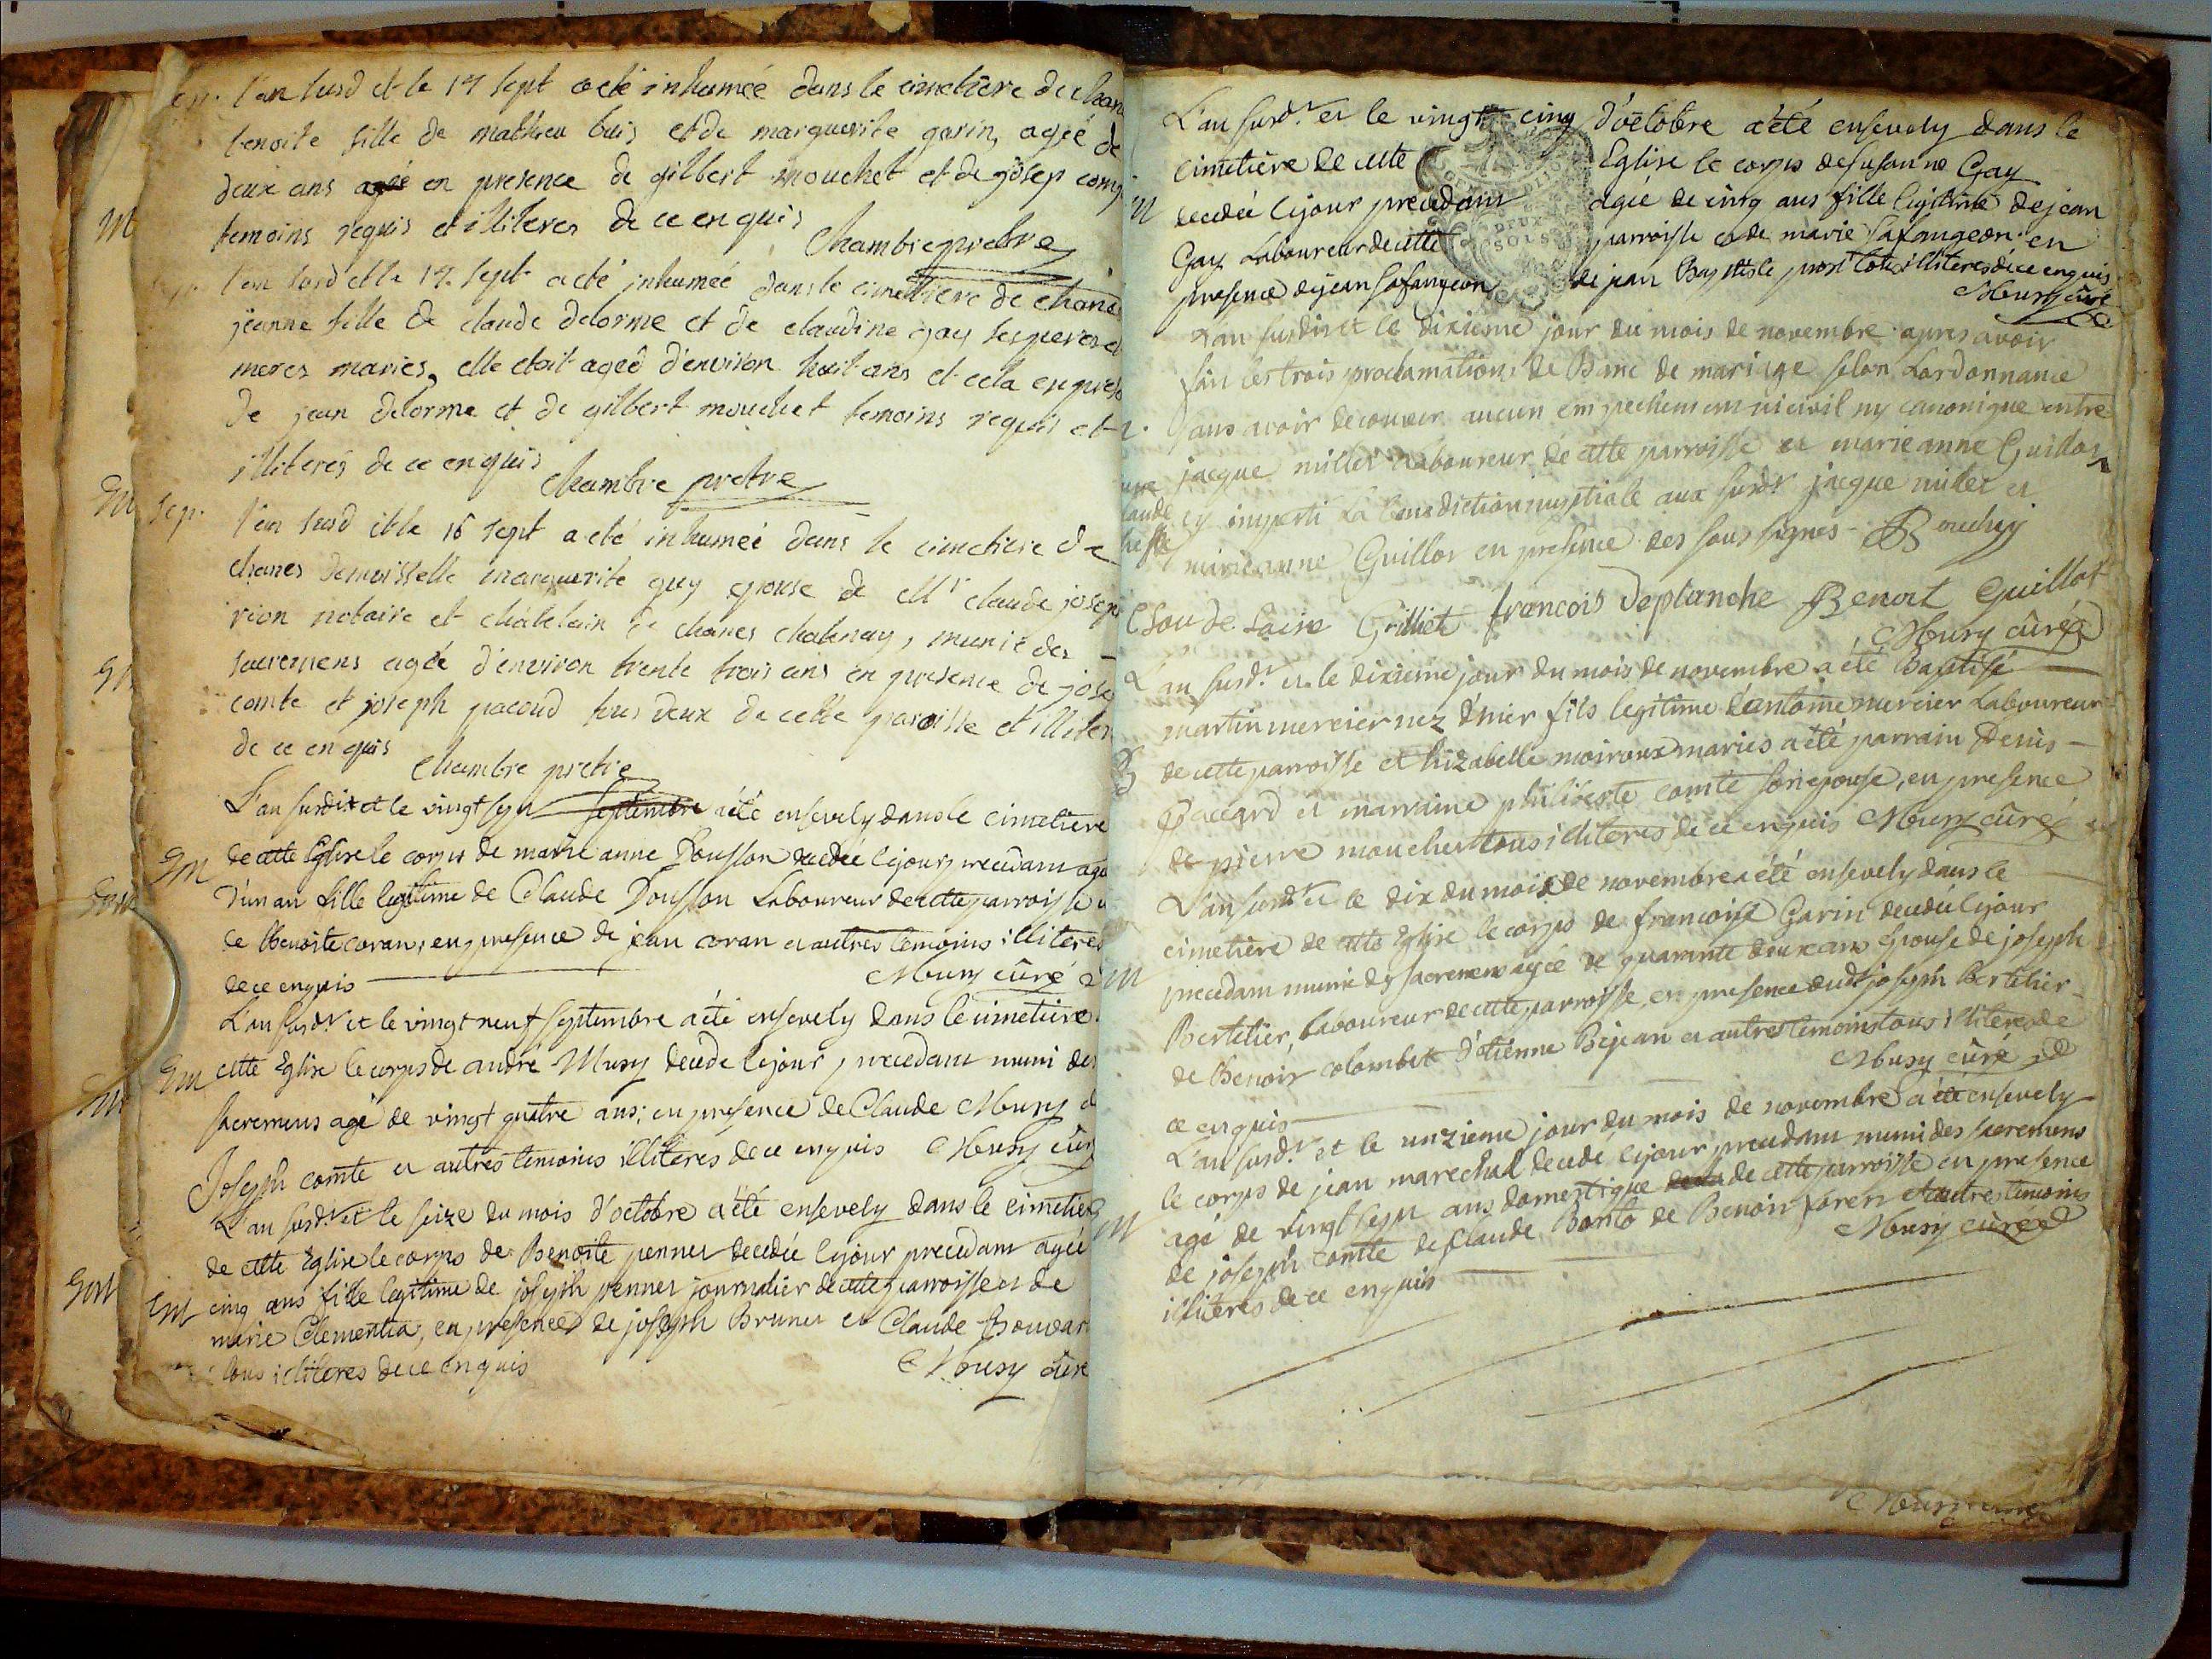 l'an susd et le 17 sept a eté inhumée dans le cimetiere de chan
benoite fille de mathieu buis et de marguerite garin, agée de
deux ans agée en presence de gilbert mouchet et de josep com
temoins requis et illiteres de ce enquis
Chambre pretre
l'an susd et le 17. sept a eté inhumée dans le cimetiere de chane
jeanne fille de claude delorme et de claudine gay ses peres et
meres mariés, elle etoit ageé d'environ huit ans et cela en prese
de jean delorme et de gilbert mouchet temoins requis et
illiterés de ce enquis
Chambre pretre
sep. l'an susd et le 18 sept a eté inhumée dans le cimetiere de
chanes demoisselle marguerite guy epouse de Mr claude josep
rion notaire et châtelain de chanes chatenay, munie des
sacremens agée d'environ trente trois ans en presence de jose
comte et joseph pacoud tous deux de cette paroisse et illiter
de ce en quis
Chambre pretre
L'an susdit et le vingt sept septembre a été ensevely dans le cimetiere
de cette Eglise le corps de marie anne Dousson decedée le jour precedant agé
D'un an fille legitime de Claude Dousson Laboureur de cette parroisse
de Benoite coran, en presence de jean coran et autres temoins illiteres
de ce enquis
Musy curé
L'an susdr et le vingt neuf septembre a été ensevely dans le cimetiere
cette Eglise le corps de andré Musy decede le jour precedant muni des
sacremens agé de vingt quatre ans; en presence de Claude Musy
Joseph comte et autres temoins illiterés de ce enquis Musy cur
L'an susdr et le seize du mois d'octobre a été ensevely dans le cimetier
de cette Eglise le corps de Benoite pennet decedée le jour precedant agée
cinq ans fille legitime de joseph pennet journalier de cette parroisse et de
marie Clementia, en presence de joseph Brunet et Claude Bouvar
tous illiteres de ce enquis
Musy cure
L'an susdr et le vingt cinq d'octobre a été ensevely dans le
cimetière de cette Eglise le corps de susanne Gay
decedée le jour precedant agée de cinq ans fille legitime de jean
Gay Laboureur de cette parroisse et de marie safangeon en
presence de jean safangeon de jean Baptiste tous illiteres de ce enquis
Musy curé
L'an susdit et le dixieme jour du mois de novembre apres avoir
fait les trois proclamations de Banc de mariage selon Lordonnance
sans avoir decouver aucun empechement ni civil ny canonique entre
jacque millet Laboureur de cette parroisse et marie anne Guillot
ey imparti La benediction nuptiale aux susdr jacque millet et
marie anne Guillot en presence des sous signes Bouchy
Grilliet francois Deplanche Benoit Guillot
Musy curé
L'an susdr et le dixieme jour du mois de novembre a été Baptisé
martin mercier nez d'hier fils legitime d'antoine mercier Laboureur
de cette parroisse et hizabelle moiroux mariés a été parrain Denis
Paccard et marraine philiberte comte son epouse, en presence
de pierre mouchet tous illiteres de ce enquis Musy curé
L'an susdr et le dix du mois de novembre a été ensevely dans le
cimetière de cette Eglise le corps de francoise Garin decedée le jour
precedant munie des sacremens agée de quarante deux ans Epouse de joseph
Bertelier, Laboureur de cette parroisse en presence dudt joseph bertelier
de Benoit colombet d'etienne Bejean et autres temoins tous illiteres de
ce enquis
Musy curé
L'an susdr et le unzieme jour du mois de novembre a été ensevely
le corps de jean marechal decede le jour precedant muni des sacremens
agé de vingt sept ans domestique de cette parroisse en presence
de joseph comte de Claude Bonto de Benoit et autres temoins
illiteres de ce enquis
Musy curé